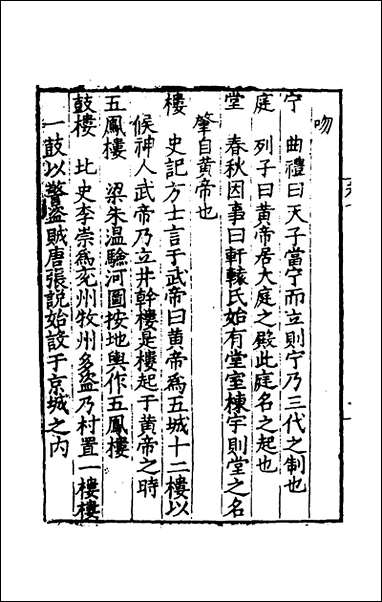 吻
宁　曲禮曰天子當宁而立則宁乃三代之制也
庭　列子曰黃帝居大庭之殿此庭名之起也
堂　春秋因事曰軒轅氏始有堂室棟宇則堂之名
肇自黃帝也
樓　史記方士言于武帝曰黃帝為五城十二樓以
候神人武帝乃立井幹樓是樓起于黃帝之時
五鳳樓　梁朱溫驗河圖按地輿作五鳳樓
鼓樓　比史李崇為兗州牧州多盗乃村置一樓樓
一鼓以警盗賊唐張說始設于京城之内